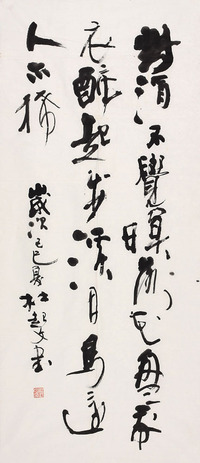 對酒不覺暝落花盈我
衣醉起步溪月鳥還
人亦稀
歲次己巳夏杜書